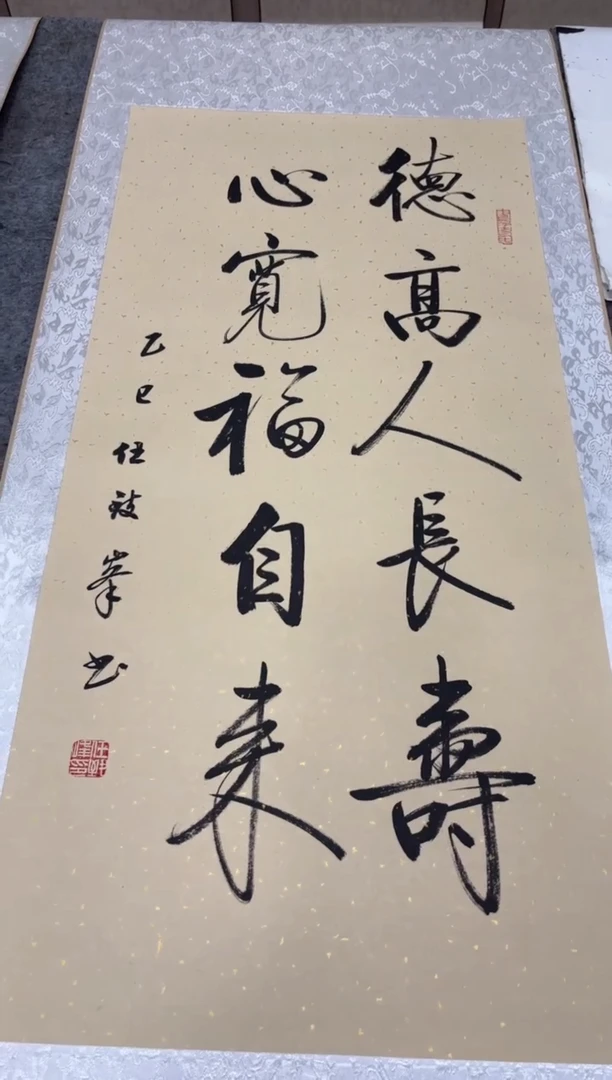 德高人長壽
心寬福自来
乙巳任
峯书